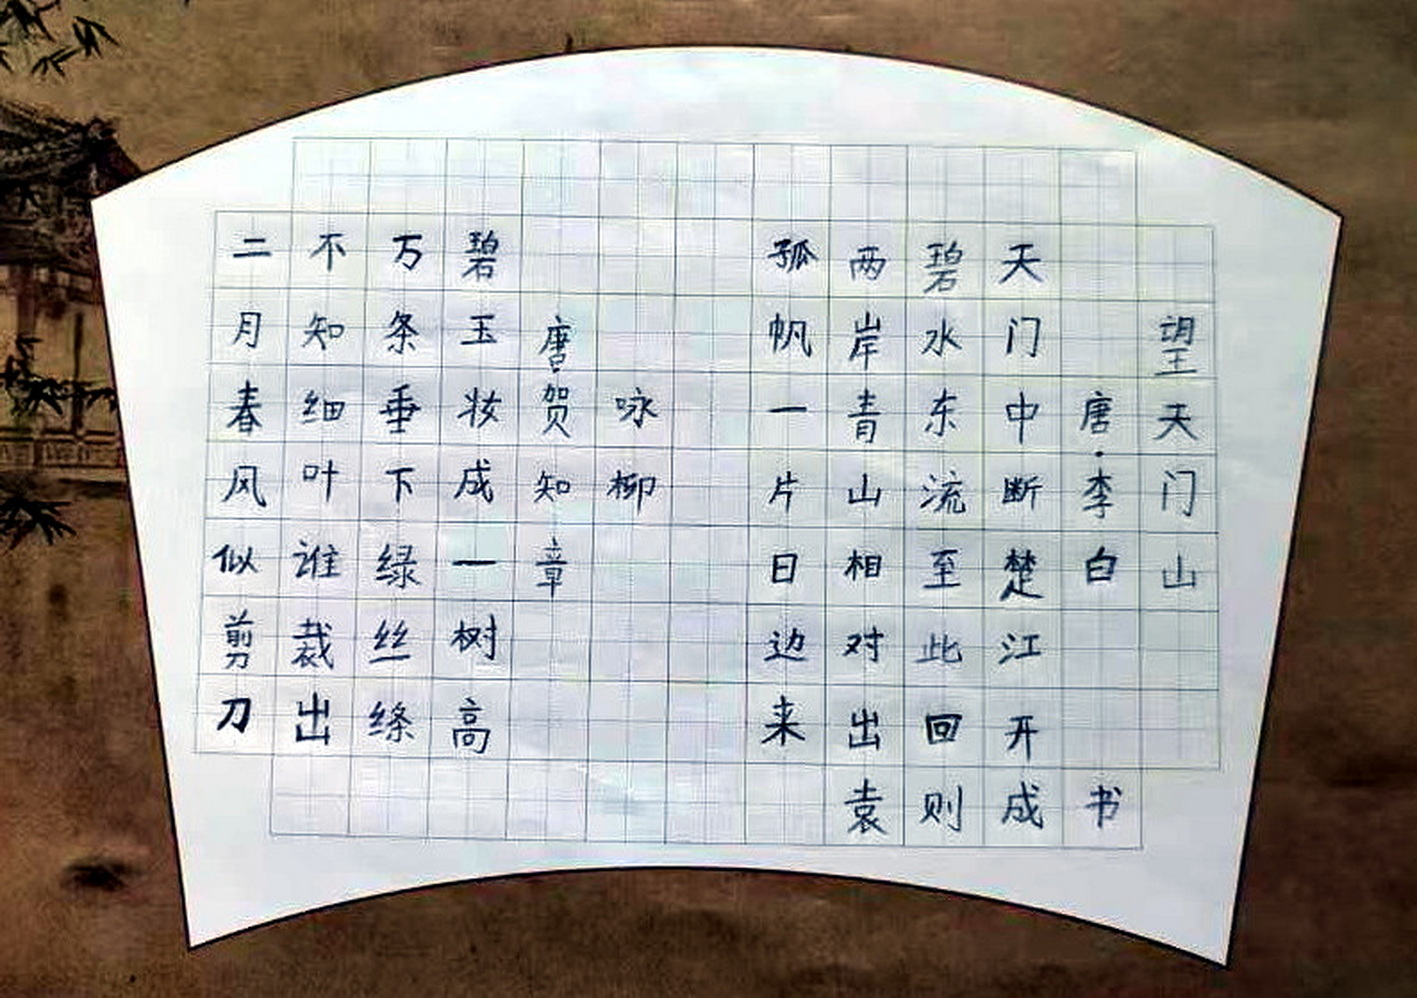 望天门山
唐·李白
天门中断楚江开
碧水东流至此回
两岸青山相对出
孤帆一片日边来
咏柳
唐贺知章
碧玉妆成一树高
万条垂下绿丝绦
不知细叶谁裁出
二月春风似剪刀
袁则成书